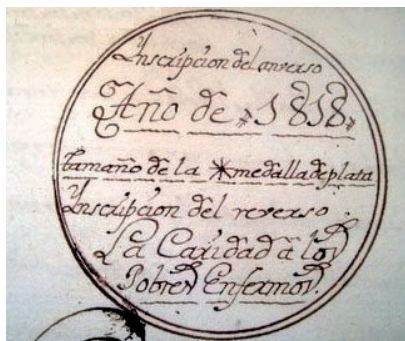 Inscripcion del anverso
Año de »1818»
tamaño de la *medalla de plata
Inscripcion del reverso
La Caridad â los
Pobres Enfermos.